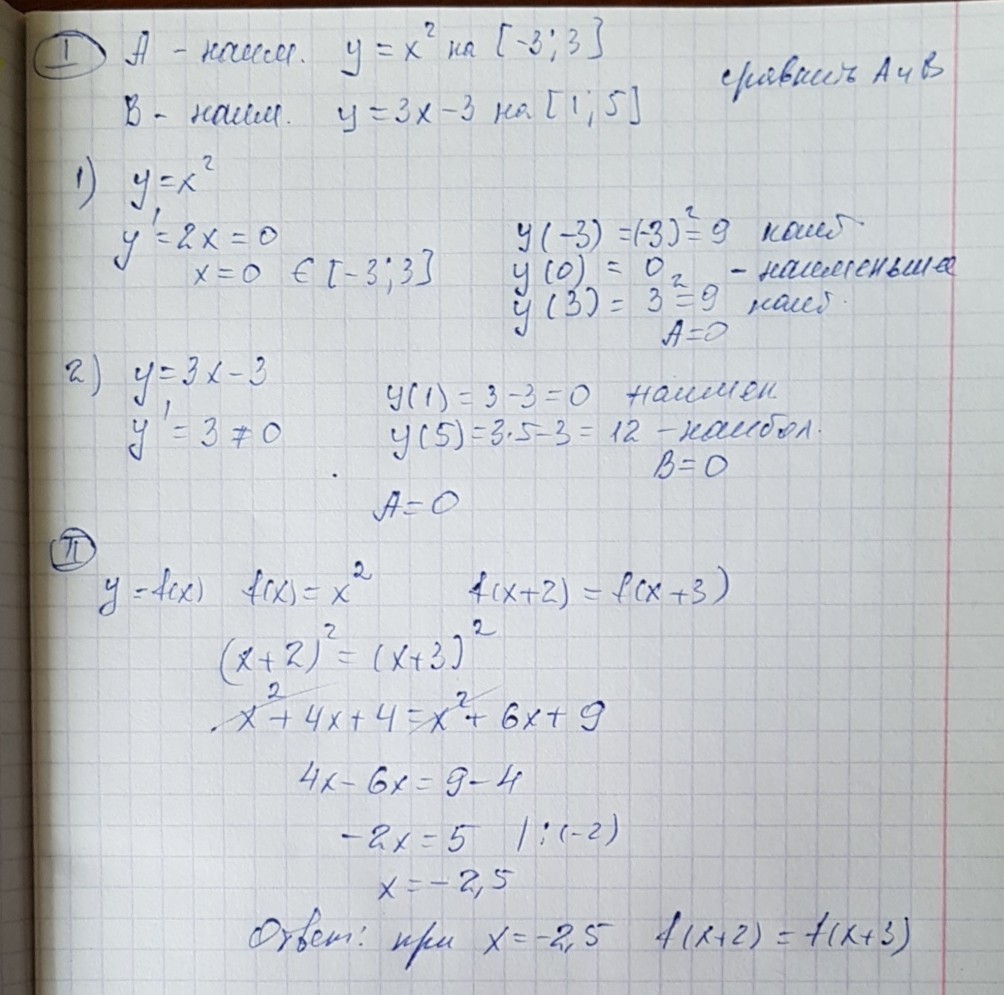 I A - наим. y = x² на [-3; 3]
сравнить A и B
B - наим. y = 3x - 3 на [1; 5]
1) y = x²
y' = 2x = 0
x = 0 ∈ [-3; 3]
y(-3) = (-3)² = 9 наиб
y(0) = 0 - наименьшее
y(3) = 3² = 9 наиб.
A = 0
2) y = 3x - 3
y' = 3 ≠ 0
y(1) = 3 - 3 = 0 наимен
y(5) = 3·5 - 3 = 12 - наибол.
B = 0
A = 0
II
y = f(x) f(x) = x² f(x+2) = f(x+3)
(x+2)² = (x+3)²
x² + 4x + 4 = x² + 6x + 9
4x - 6x = 9 - 4
-2x = 5 | : (-2)
x = -2,5
Ответ: при x = -2,5 f(x+2) = f(x+3)